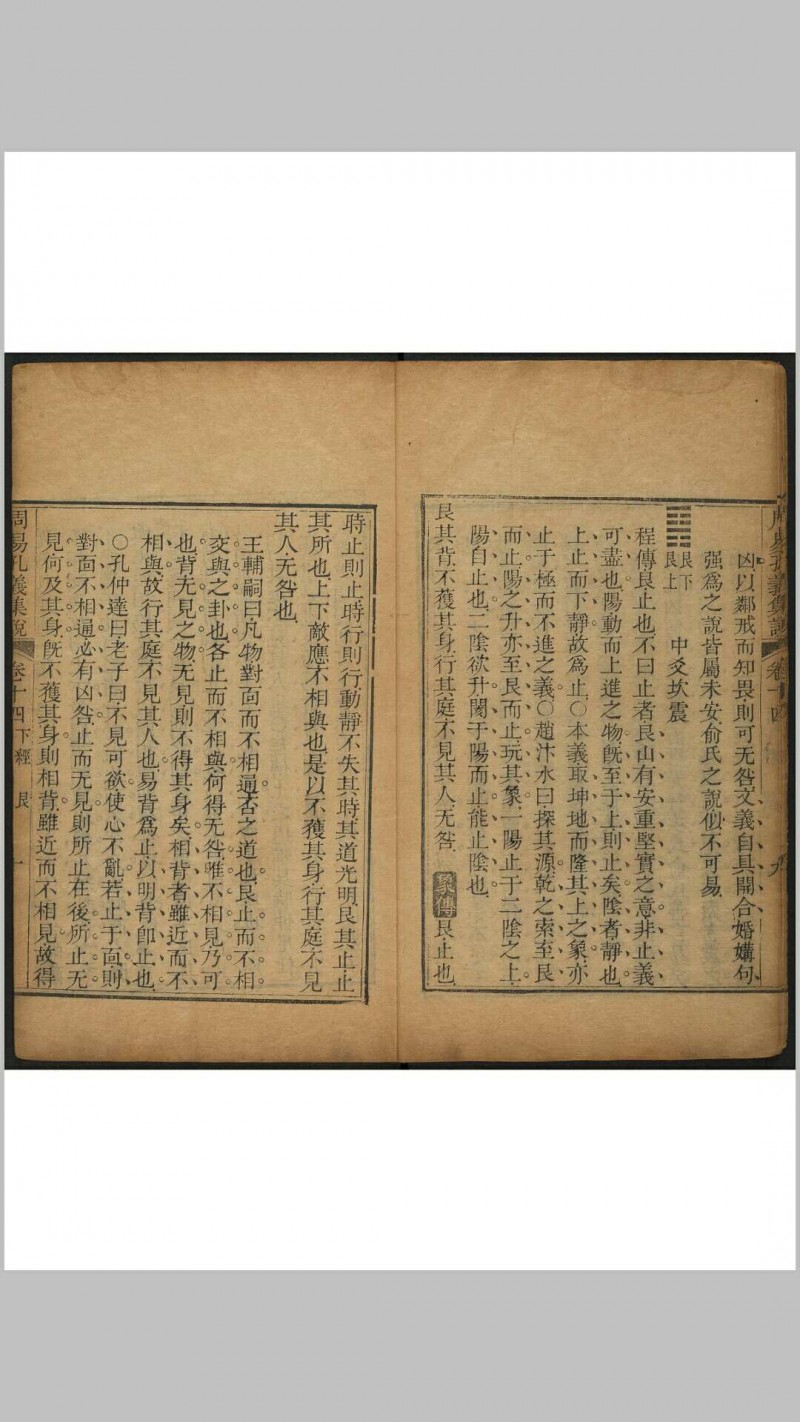 凶以鄰戒而知畏則可无咎文義自具開合婚媾句
强爲之說皆屬未安俞氏之說似不可易
艮下
艮上
中爻坎震
程傳艮止也不曰止者艮山有安重堅實之意非止義
可盡也陽動而上進之物旣至于上則止矣陰者靜也
上止而下靜故爲止○本義取坤地而隆其上之象亦
止于極而不進之義○趙汴水曰探其源乾之索至艮
而止陽之升亦至艮而止玩其象一陽止于二陰之上
陽自止也二陰欲升閡于陽而止能止陰也
艮其背不獲其身行其庭不見其人无咎 彖傳 艮止也
時止則止時行則行動靜不失其時其道光明艮其止止
其所也上下敵應不相與也是以不獲其身行其庭不見
其人无咎也
王輔嗣曰凡物對面而不相通否之道也艮止而不相
交與之卦也各止而不相與何得无咎唯不相見乃可
也背无見之物无見則不得其身矣相背者雖近而不
相與故行其庭不見其人也易背爲止以明背卽止也
○孔仲達曰老子曰不見可欲使心不亂若止于面則
對面不相通必有凶咎止而无見則所止在後所止无
見何及其身旣不獲其身則相背雖近而不相見故得
周易孔義集說 卷十四下經 艮 一